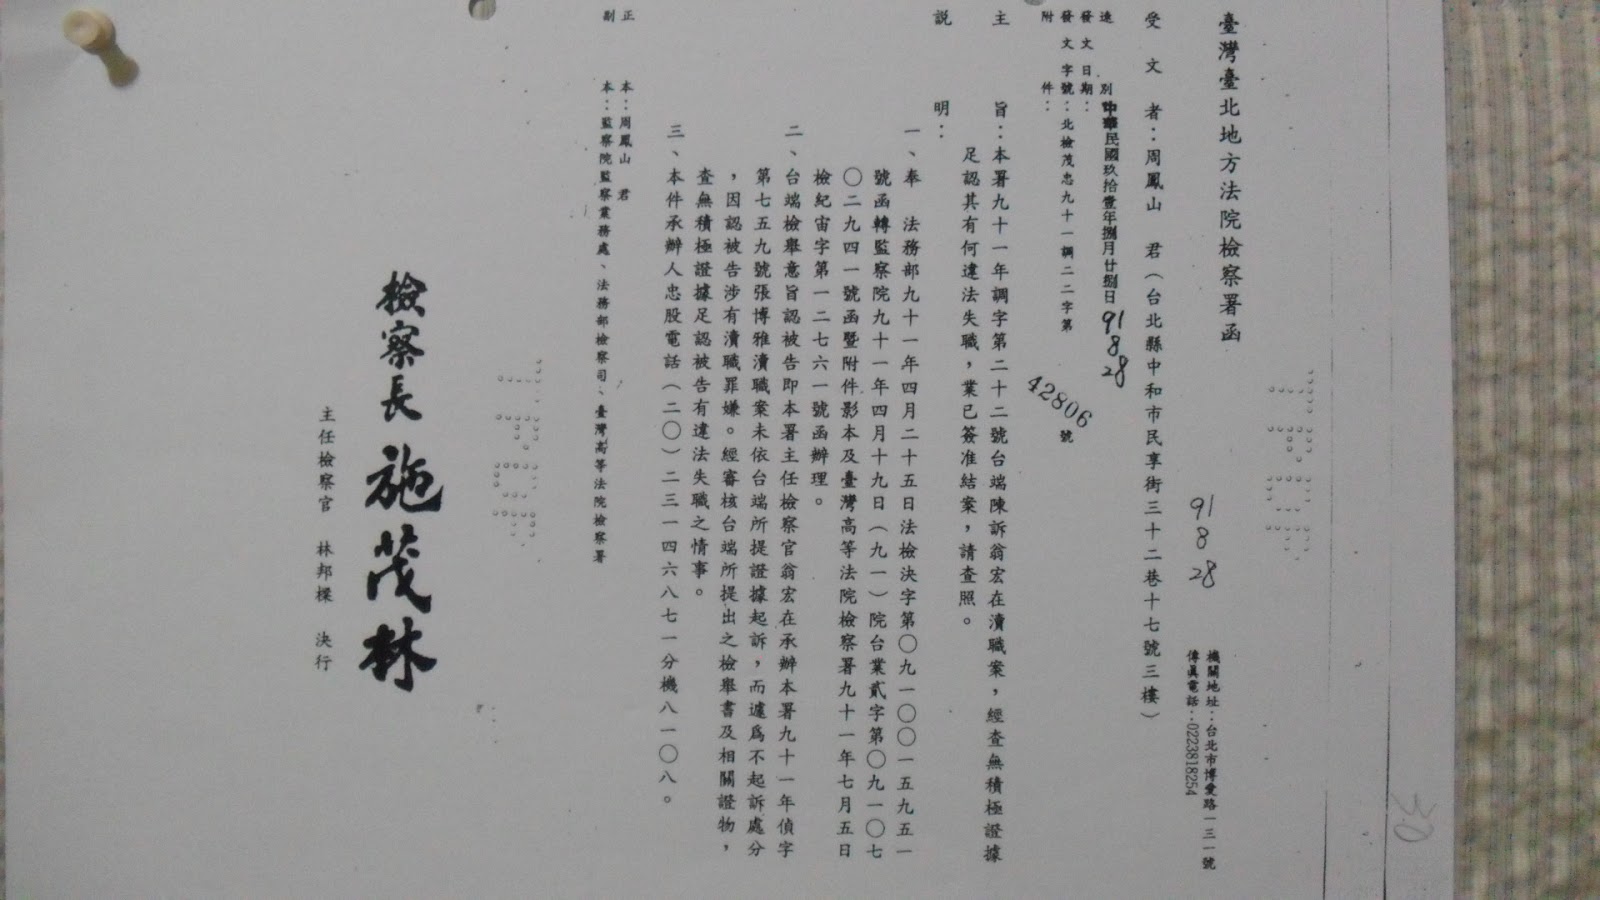 臺灣臺北地方法院檢察署函
機關地址：台北市博愛路一三一號
傳眞電話：0223818254
91 8 28
受文者：周鳳山　君（台北縣中和市民享街三十二巷十七號三樓）
速別：
發文日期：中華民國玖拾壹年捌月廿捌日
91 8 28
發文字號：北檢茂忠九十一調二二字第42806號
附件：
主旨：本署九十一年調字第二十二號台端陳訴翁宏在瀆職案，經查無積極證據
足認其有何違法失職，業已簽准結案，請查照。
説明：
一、奉　法務部九十一年四月二十五日法檢決字第〇九一〇〇一五九五一
號函轉監察院九十一年四月十九日（九一）院台業貳字第〇九一〇七
〇二九四一號函暨附件影本及臺灣高等法院檢察署九十一年七月五日
檢紀宙字第一二七六一號函辦理。
二、台端檢舉意旨認被告即本署主任檢察官翁宏在承辦本署九十一年偵字
第七五九號張博雅瀆職案未依台端所提證據起訴，而遽爲不起訴處分
，因認被告涉有瀆職罪嫌。經審核台端所提出之檢舉書及相關證物，
查無積極證據足認被告有違法失職之情事。
三、本件承辦人忠股電話（二〇）二三一四六八七一分機八一〇八。
正本：周鳳山　君
副本：監察院監察業務處、法務部檢察司、臺灣高等法院檢察署
檢察長 施茂林
主任檢察官　林邦樑　決行
30